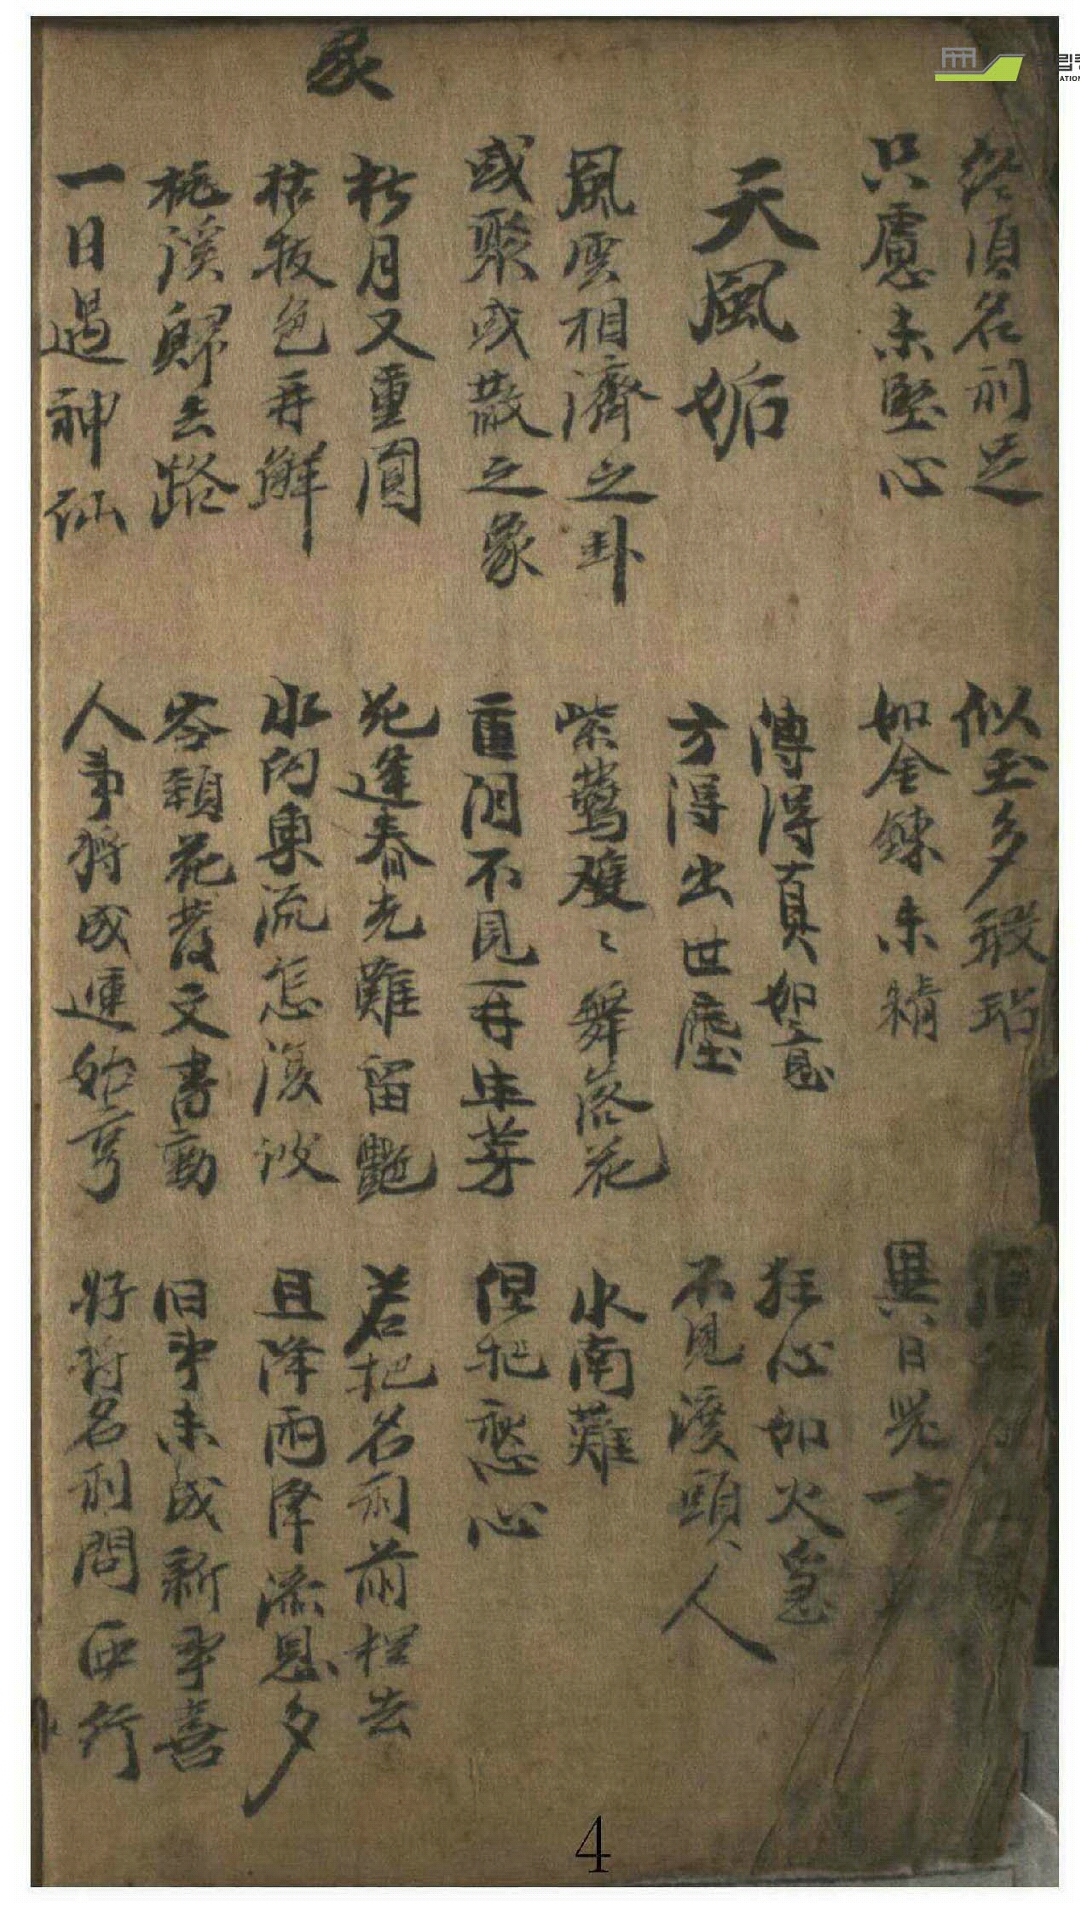 終須名利足 似玉多瑕玷
只慮未堅心 如金鍊未精 異日
傳得真如意 狂心如火急
天風姤 方得出世塵 不見渡頭人
風雲相濟之卦 紫鶯雙〻舞落花 水南難
或聚或散之象 重開不見再生芽 但把愁心
象
朽月又重圓 花逢春光難留艶 若把名利前程去
枯枝色再鮮 水向東流怎復波 且降雨降流恩多
桃溪歸去路 花發文書動 旧事未成新事喜
一日遇神仙 人事將成運始亨 好將名利問西行
4